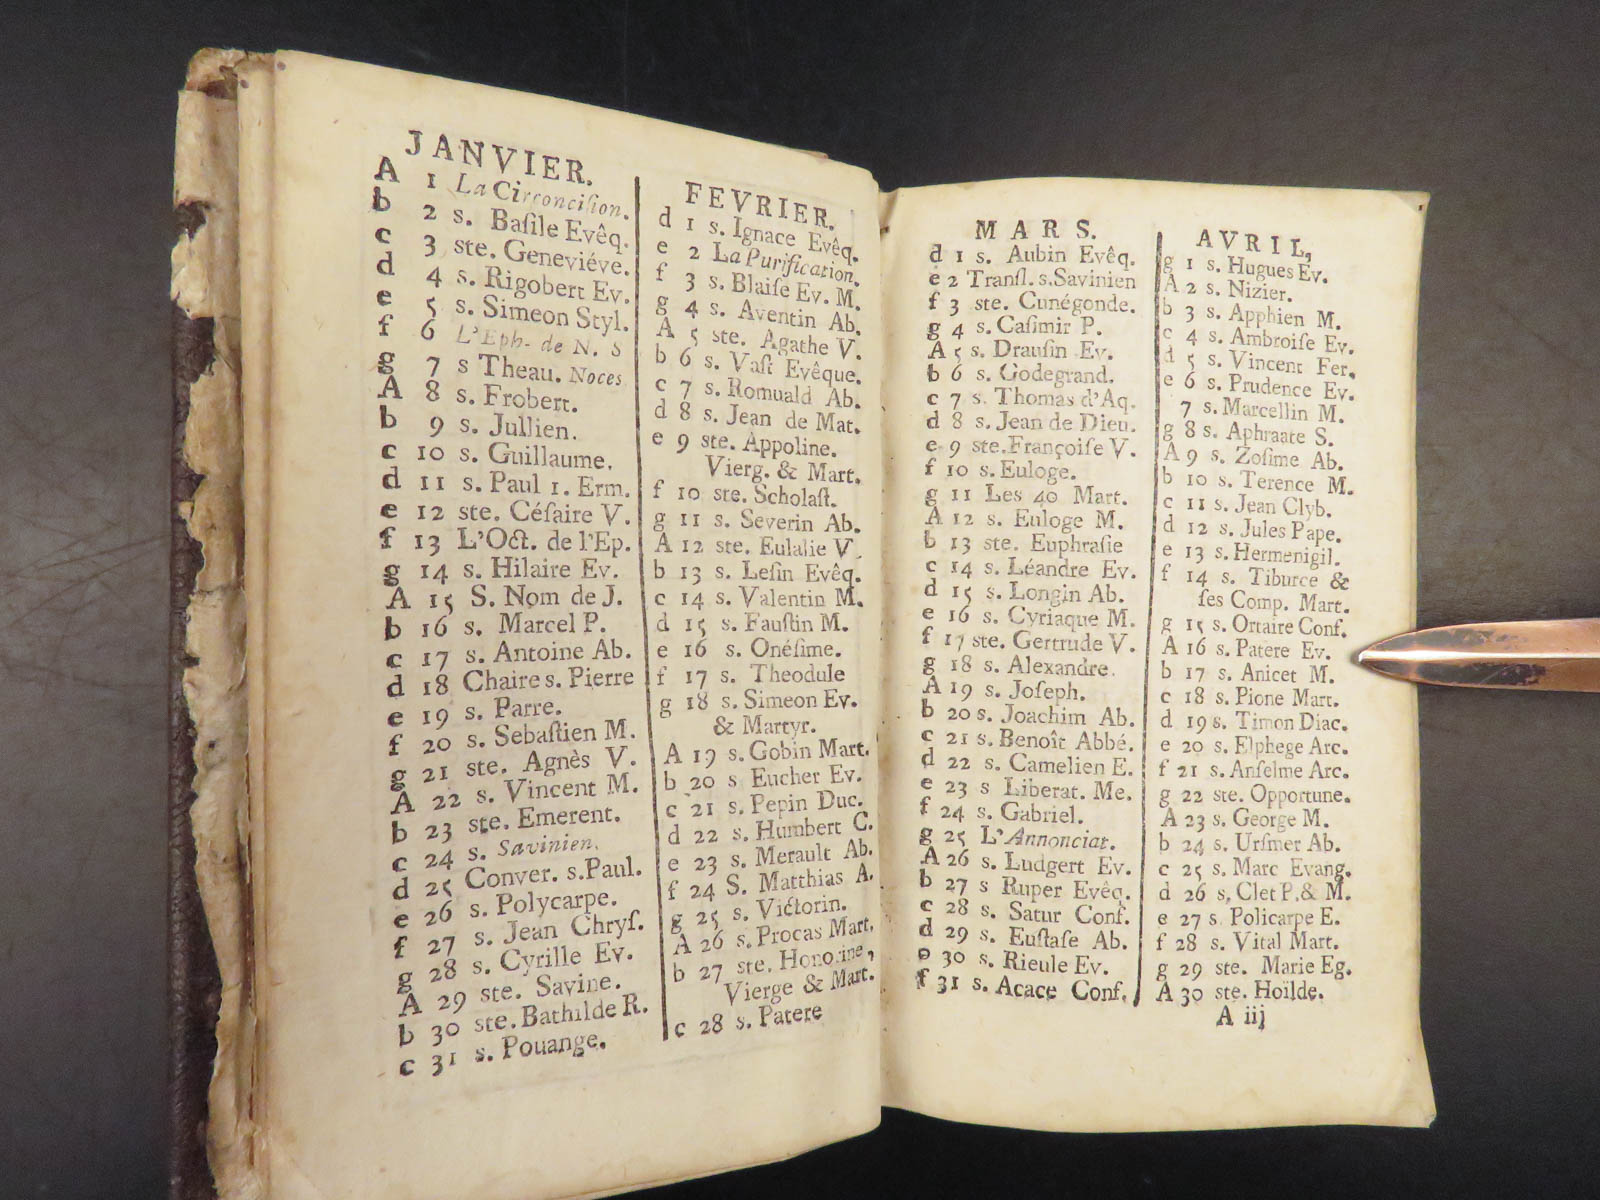 JANVIER.
A 1 La Circoncision.
b 2 s. Basile Evêq.
c 3 ste. Geneviéve.
d 4 s. Rigobert Ev.
e 5 s. Simeon Styl.
f 6 L'Eph. de N. S
g 7 s Theau. Noces
A 8 s. Frobert.
b 9 s. Jullien.
c 10 s. Guillaume.
d 11 s. Paul 1. Erm.
e 12 ste. Césaire V.
f 13 L'Oct. de l'Ep.
g 14 s. Hilaire Ev.
A 15 S. Nom de J.
b 16 s. Marcel P.
c 17 s. Antoine Ab.
d 18 Chaire s. Pierre
e 19 s. Parre.
f 20 s. Sebastien M.
g 21 ste. Agnès V.
A 22 s. Vincent M.
b 23 ste. Emerent.
c 24 s. Savinien.
d 25 Conver. s. Paul.
e 26 s. Polycarpe.
f 27 s. Jean Chrys.
g 28 s. Cyrille Ev.
A 29 ste. Savine.
b 30 ste. Bathilde R.
c 31 s. Pouange.
FEVRIER.
d 1 s. Ignace Evêq.
e 2 La Purification.
f 3 s. Blaise Ev. M.
g 4 s. Aventin Ab.
A 5 ste. Agathe V.
b 6 s. Vast Evêque.
c 7 s. Romuald Ab.
d 8 s. Jean de Mat.
e 9 ste. Appoline.
Vierg. & Mart.
f 10 ste. Scholast.
g 11 s. Severin Ab.
A 12 ste. Eulalie V.
b 13 s. Lesin Evêq.
c 14 s. Valentin M.
d 15 s. Faustin M.
e 16 s. Onésime.
f 17 s. Theodule
g 18 s. Simeon Ev.
& Martyr.
A 19 s. Gobin Mart.
b 20 s Eucher Ev.
c 21 s. Pepin Duc.
d 22 s. Humbert C.
e 23 s. Merault Ab.
f 24 S. Matthias A.
g 25 s. Victorin.
A 26 s. Procas Mart.
b 27 ste. Honorine,
Vierge & Mart.
c 28 s. Patere
MARS.
d 1 s. Aubin Evêq.
e 2 Transl. s. Savinien
f 3 ste. Cunégonde.
g 4 s. Casimir P.
A 5 s. Drausin Ev.
b 6 s. Godegrand.
c 7 s. Thomas d'Aq.
d 8 s. Jean de Dieu.
e 9 ste. Françoise V.
f 10 s. Euloge.
g 11 Les 40 Mart.
A 12 s. Euloge M.
b 13 ste. Euphrasie
c 14 s. Léandre Ev.
d 15 s. Longin Ab.
e 16 s. Cyriaque M.
f 17 ste. Gertrude V.
g 18 s. Alexandre.
A 19 s. Joseph.
b 20 s. Joachim Ab.
c 21 s. Benoît Abbé.
d 22 s. Camelien E.
e 23 s Liberat. Me.
f 24 s. Gabriel.
g 25 L'Annonciat.
A 26 s. Ludgert Ev.
b 27 s Ruper Evêq.
c 28 s. Satur Conf.
d 29 s. Eustase Ab.
e 30 s. Rieule Ev.
f 31 s. Acace Conf.
AVRIL,
g 1 s. Hugues Ev.
A 2 s. Nizier.
b 3 s. Apphien M.
c 4 s. Ambroise Ev.
d 5 s. Vincent Fer.
e 6 s. Prudence Ev.
7 s. Marcellin M.
g 8 s. Aphraate S.
A 9 s. Zosime Ab.
b 10 s. Terence M.
c 11 s. Jean Clyb.
d 12 s. Jules Pape.
e 13 s. Hermenigil.
f 14 s. Tiburce &
ses Comp. Mart.
g 15 s. Ortaire Conf.
A 16 s. Patere Ev.
b 17 s. Anicet M.
c 18 s. Pione Mart.
d 19 s. Timon Diac.
e 20 s. Elphege Arc.
f 21 s. Anselme Arc.
g 22 ste. Opportune.
A 23 s. George M.
b 24 s. Ursmer Ab.
c 25 s. Marc Evang.
d 26 s. Clet P. & M.
e 27 s. Policarpe E.
f 28 s. Vital Mart.
g 29 ste. Marie Eg.
A 30 ste. Hoïlde.
A iij